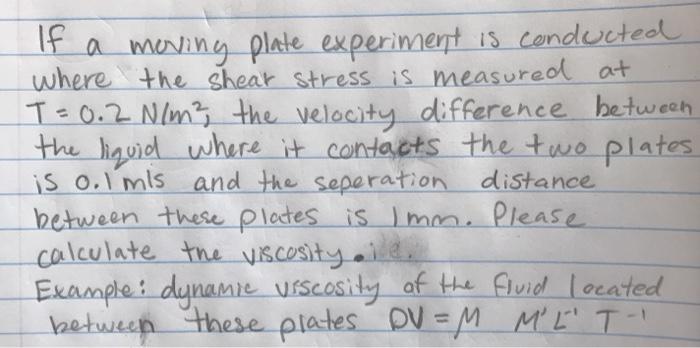 If a moving plate experiment is conducted
where the shear stress is measured at
T = 0.2 N/m², the velocity difference between
the liquid where it contacts the two plates
is 0.1 m/s and the seperation distance
between these plates is 1mm. Please
calculate the viscosity. i.e.
Example: dynamic viscosity of the fluid located
between these plates DV = M M' L⁻¹ T⁻¹